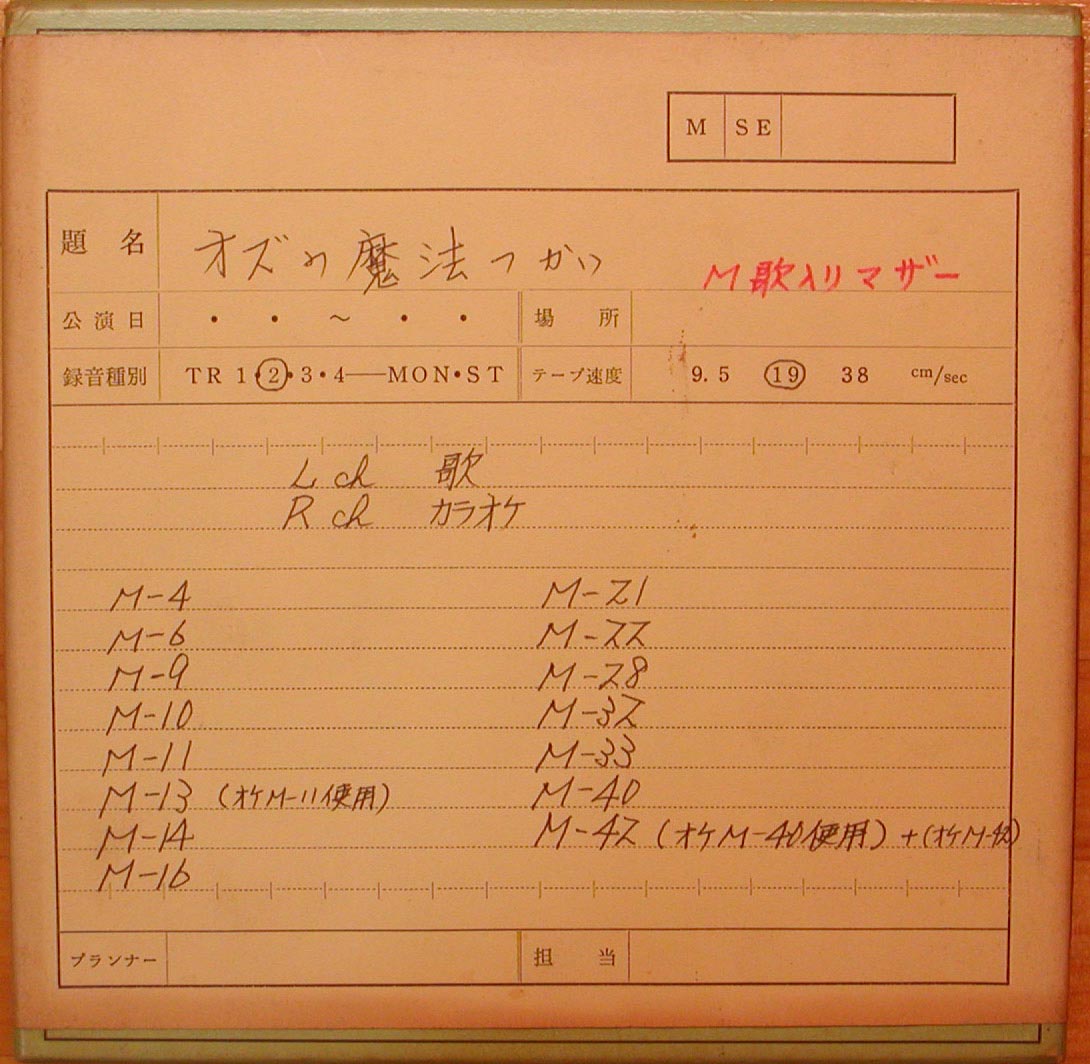 M SE
題名 オズの魔法つかい M歌入リマザー
公演日 ・ ・ ～ ・ ・ 場所
録音種別 TR 1・2・3・4—MON・ST テープ速度 9.5 19 38 cm/sec
L ch 歌
R ch カラオケ
M-4 M-21
M-6 M-22
M-9 M-28
M-10 M-32
M-11 M-33
M-13 (オケM-11使用) M-40
M-14 M-42 (オケM-40使用) + (オケM-42)
M-16
プランナー 担当